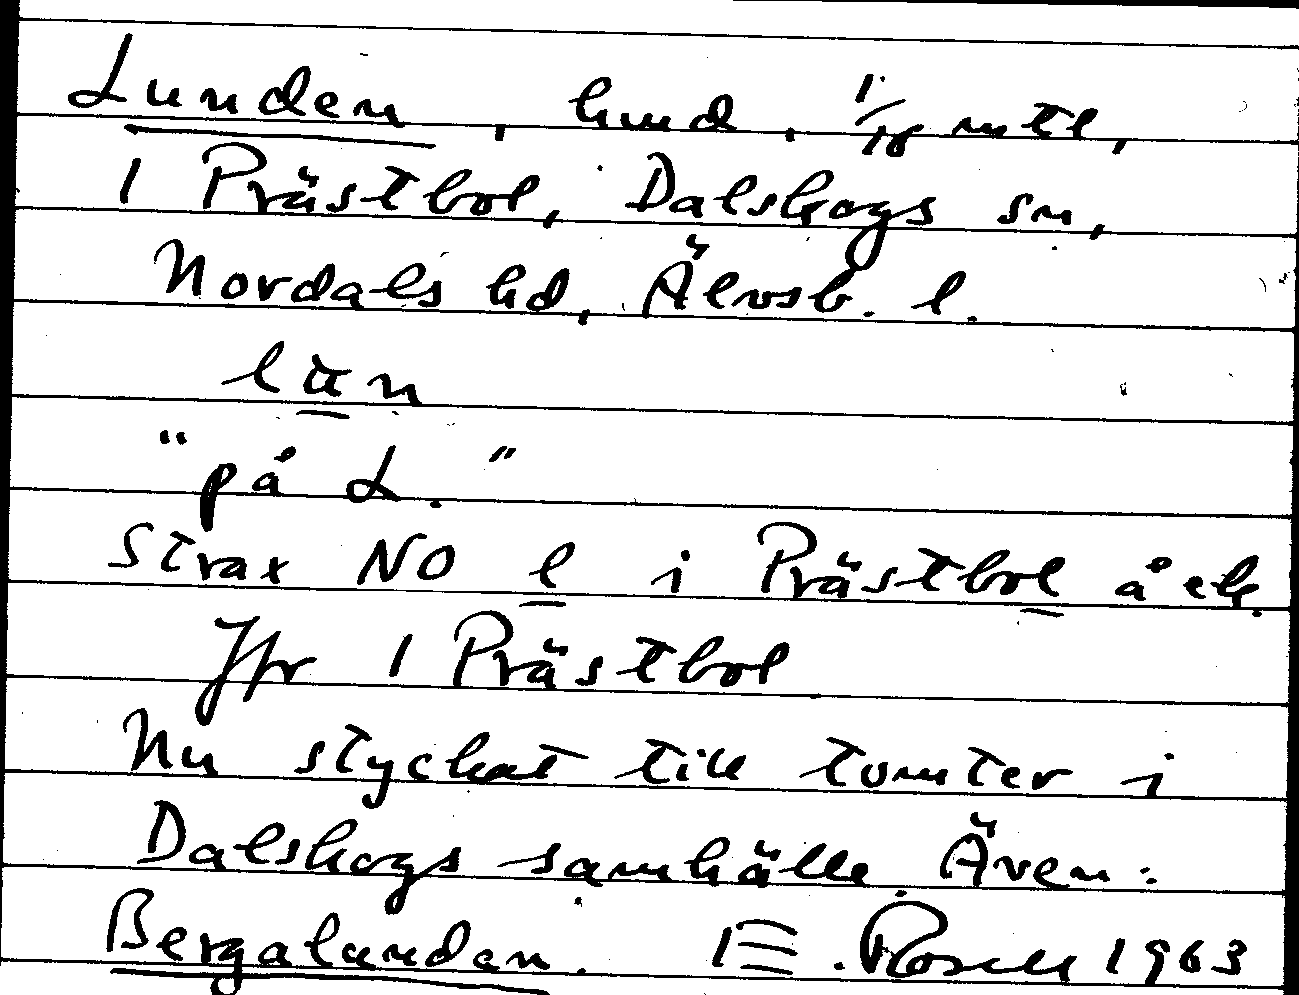 Lunden, hmd, 1/16 mtl,
1 Prästbol, Dalskogs sn,
Nordals hd, Älvsb. l.
län
"på L."
Strax NO l i Prästbol å ek.
Jfr 1 Prästbol
Nu styckat till tomter i
Dalskogs samhälle. Även:
Bergalunden. Rosell 1963